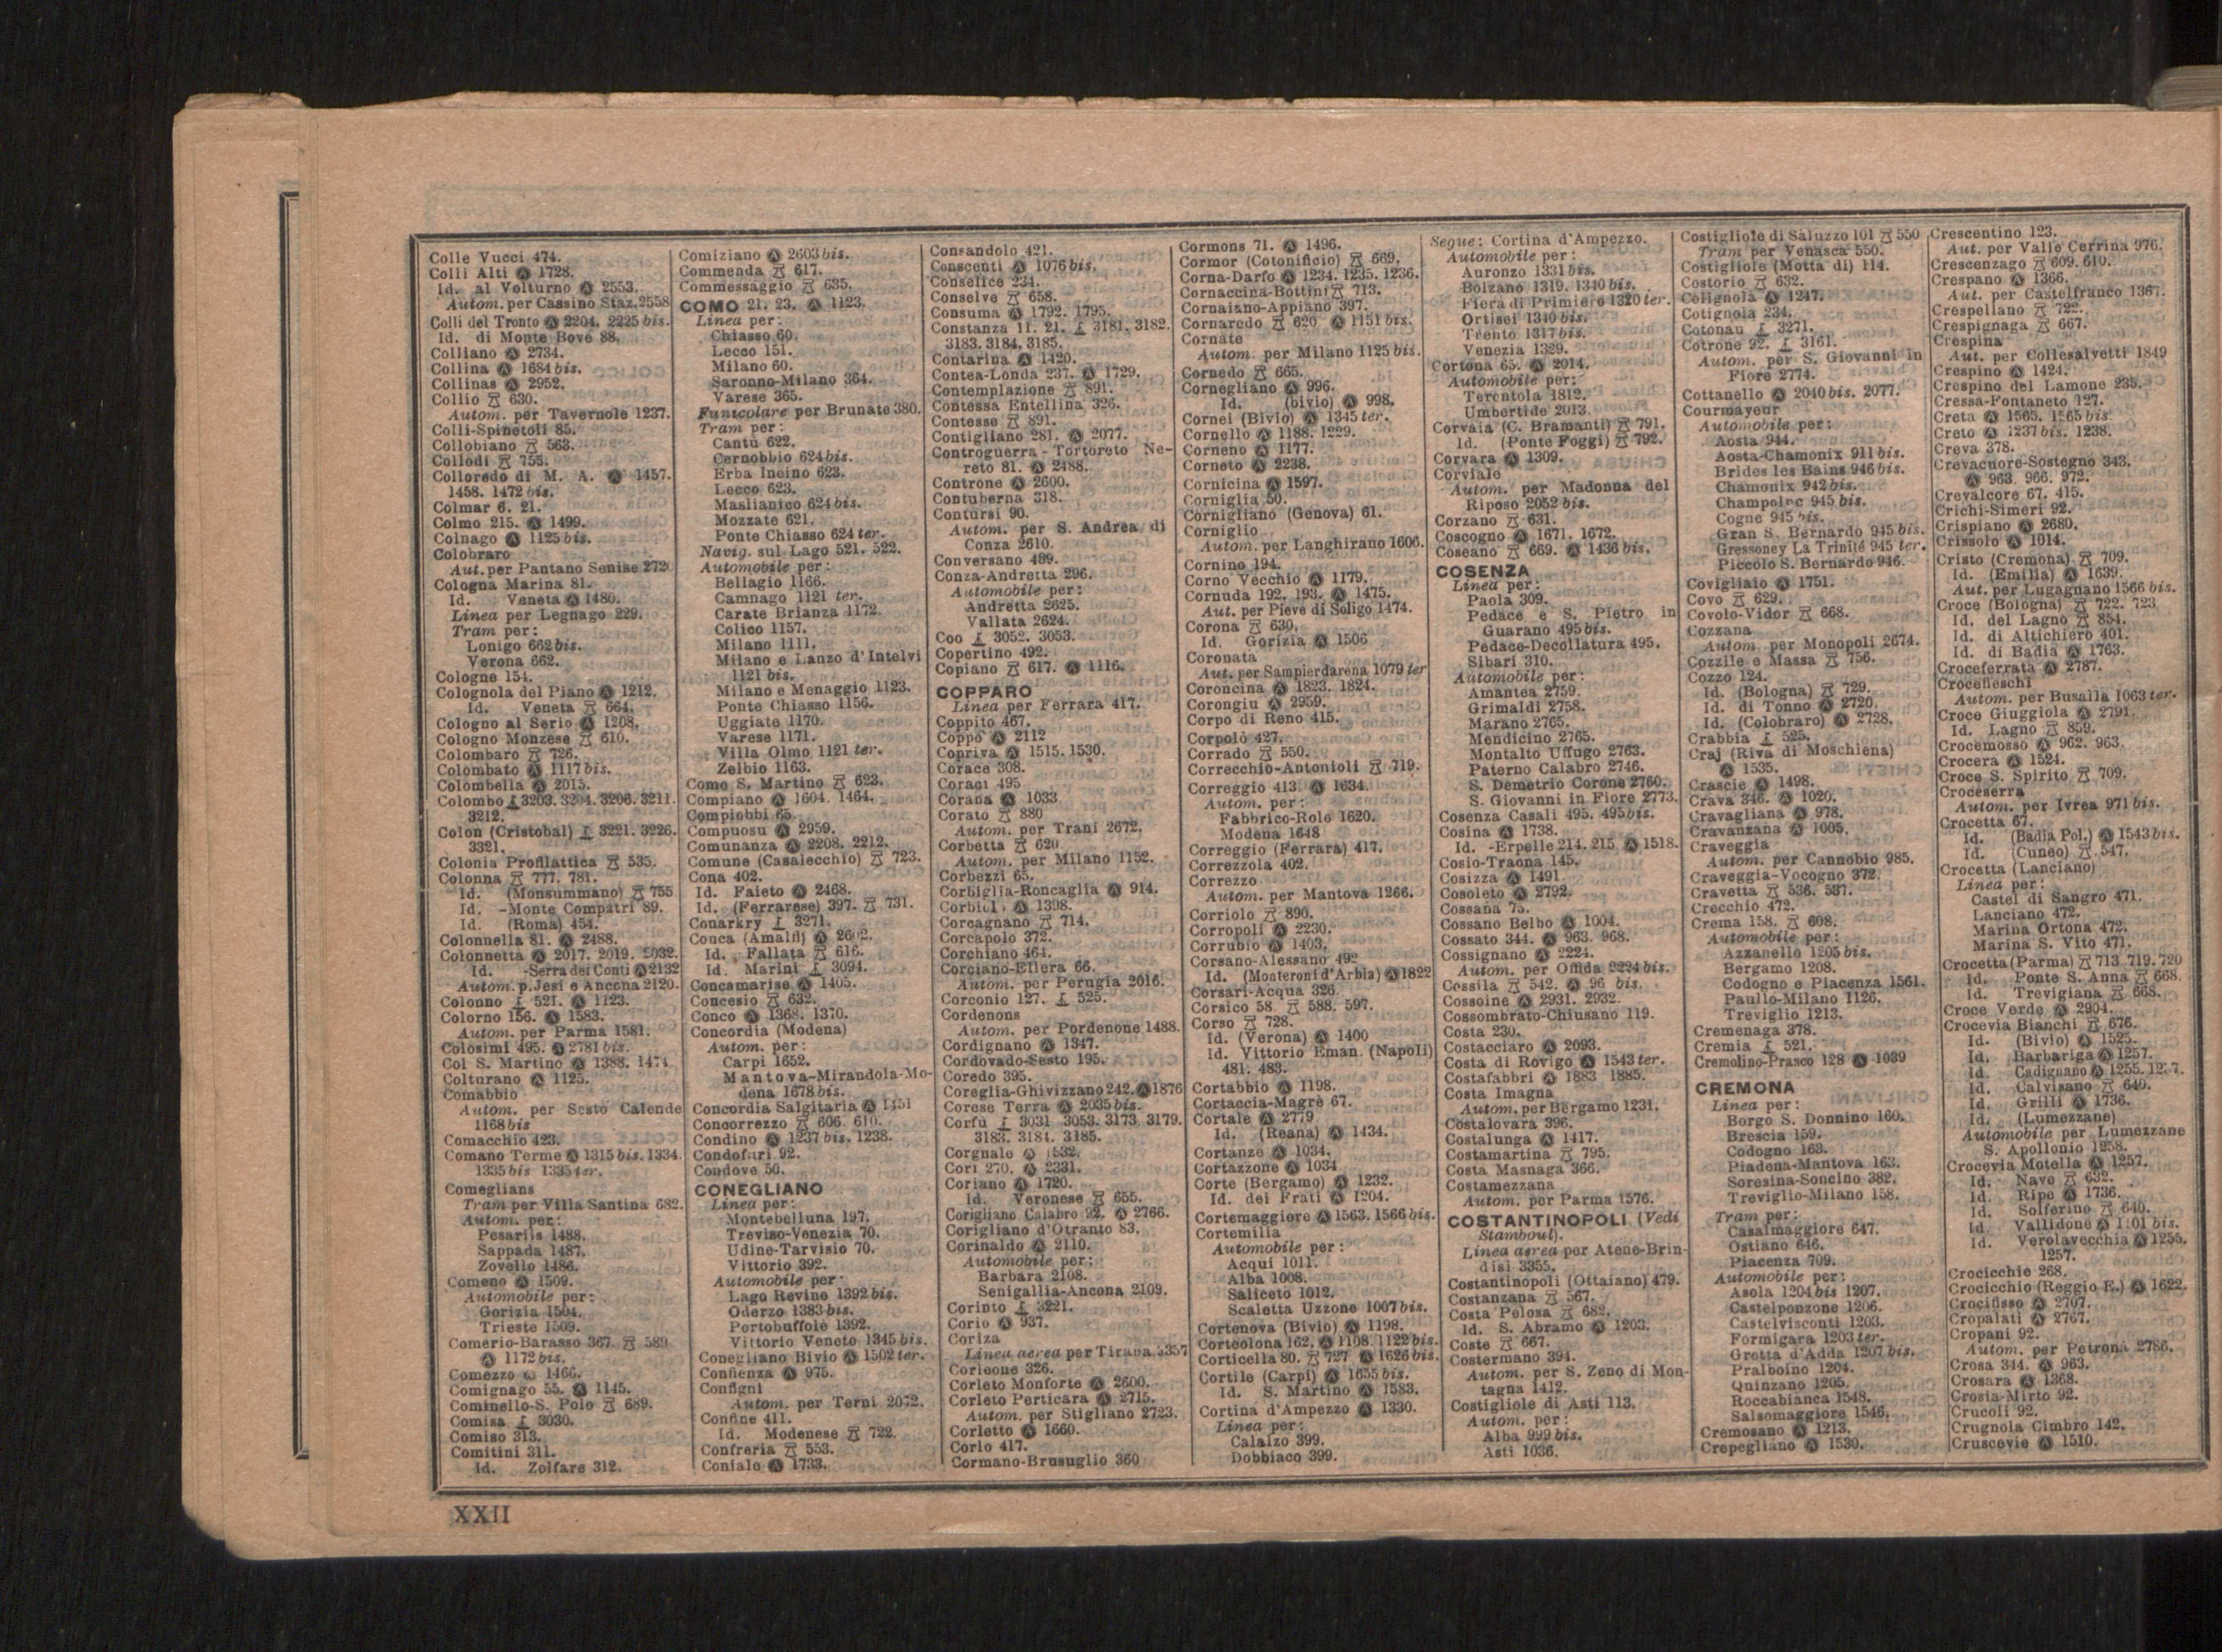 Colle Vucci 474.
Colli Alti Ⓐ 1728.
Id. al Volturno Ⓐ 2553.
Autom. per Cassino Staz. 2558
Colli del Tronto Ⓐ 2204. 2225 bis.
Id. di Monte Bove 88.
Colliano Ⓐ 2734.
Collina Ⓐ 1684 bis.
Collinas Ⓐ 2952.
Collio 630.
Autom. per Tavernole 1237.
Colli-Spinetoli 85.
Collobiano 563.
Collodi 755.
Colloredo di M. A. Ⓐ 1457.
1458. 1472 bis.
Colmar 6. 21.
Colmo 215. Ⓐ 1499.
Colnago Ⓐ 1125 bis.
Colobraro
Aut. per Pantano Senise 2726
Cologna Marina 81.
Id. Veneta Ⓐ 1480.
Linea per Legnago 229.
Tram per:
Lonigo 662 bis.
Verona 662.
Cologne 154.
Colognola del Piano Ⓐ 1212.
Id. Veneta 664.
Cologno al Serio Ⓐ 1208.
Cologno Monzese 610.
Colombaro 726.
Colombato Ⓐ 1117 bis.
Colombella Ⓐ 2015.
Colombo 3203. 3204. 3206. 3211.
3212.
Colon (Cristobal) 3221. 3226.
3321.
Colonia Profilattica 535.
Colonna 777. 781.
Id. (Monsummano) 755
Id. -Monte Compatri 89.
Id. (Roma) 454.
Colonnella 81. Ⓐ 2488.
Colonnetta Ⓐ 2017. 2019. 2032.
Id. -Serra dei Conti Ⓐ 2132
Autom. p. Jesi e Ancona 2120.
Colonno 521. Ⓐ 1123.
Colorno 156. Ⓐ 1583.
Autom. per Parma 1581.
Colosimi 495. Ⓐ 2781 bis.
Col S. Martino Ⓐ 1388. 1474
Colturano Ⓐ 1125.
Comabbio
Autom. per Sesto Calende
1168 bis
Comacchio 423.
Comano Terme Ⓐ 1315 bis. 1334.
1335 bis 1335 ter.
Comeglians
Tram per Villa Santina 682.
Autom. per:
Pesariis 1488.
Sappada 1487.
Zovello 1486.
Comeno Ⓐ 1509.
Automobile per:
Gorizia 1504.
Trieste 1509.
Comerio-Barasso 367. 589
Ⓐ 1172 bis.
Comezzo 1466.
Comignago 55. Ⓐ 1145.
Cominello-S. Polo 689.
Comisa 3030.
Comiso 313.
Comitini 311.
Id. Zolfare 312.
Comiziano Ⓐ 2603 bis.
Commenda 617.
Commessaggio 635.
COMO 21. 23. Ⓐ 1123.
Linea per:
Chiasso 60.
Lecco 151.
Milano 60.
Saronno-Milano 364.
Varese 365.
Funicolare per Brunate 380.
Tram per:
Cantù 622.
Cernobbio 624 bis.
Erba Incino 623.
Lecco 623.
Maslianico 624 bis.
Mozzate 621.
Ponte Chiasso 624 ter.
Navig. sul Lago 521. 522.
Automobile per:
Bellagio 1166.
Camnago 1121 ter.
Carate Brianza 1172.
Colico 1157.
Milano 1111.
Milano e Lanzo d'Intelvi
1121 bis.
Milano e Menaggio 1123.
Ponte Chiasso 1156.
Uggiate 1170.
Varese 1171.
Villa Olmo 1121 ter.
Zelbio 1163.
Como S. Martino 623.
Compiano Ⓐ 1604. 1464.
Compiobbi 65.
Compuosu Ⓐ 2959.
Comunanza Ⓐ 2208. 2212.
Comune (Casalecchio) 723.
Cona 402.
Id. Faieto Ⓐ 2468.
Id. (Ferrarese) 397. 731.
Conarkry 3271.
Conca (Amalfi) Ⓐ
Id. Fallata 616.
Id. Marini 3094.
Concamarise Ⓐ 1405.
Concesio 632.
Conco Ⓐ 1368. 1370.
Concordia (Modena)
Autom. per:
Carpi 1652.
Mantova-Mirandola-Mo-
dena 1678 bis.
Concordia Salgitaria Ⓐ 1451
Concorrezzo 606. 610.
Condino Ⓐ 1237 bis. 1238.
Condofuri 92.
Condove 50.
CONEGLIANO
Linea per:
Montebelluna 197.
Treviso-Venezia 70.
Udine-Tarvisio 70.
Vittorio 392.
Automobile per:
Lago Revine 1392 bis.
Oderzo 1383 bis.
Portobuffolè 1392.
Vittorio Veneto 1345 bis.
Conegliano Bivio Ⓐ 1502 ter.
Confienza Ⓐ 975.
Configni
Autom. per Terni 2072.
Confine 411.
Id. Modenese 722.
Confreria 553.
Coniale Ⓐ 1733.
Consandolo 421.
Conscenti Ⓐ 1076 bis.
Conselice 234.
Conselve 658.
Consuma Ⓐ 1792. 1795.
Constanza 11. 21. 3181. 3182.
3183. 3184. 3185.
Contarina Ⓐ 1420.
Contea-Londa 237. Ⓐ 1729.
Contemplazione 891.
Contessa Entellina 326.
Contesse 891.
Contigliano 281. Ⓐ 2077.
Controguerra - Tortoreto Ne-
reto 81. Ⓐ 2488.
Controne Ⓐ 2600.
Contuberna 318.
Contursi 90.
Autom. per S. Andrea di
Conza 2610.
Conversano 489.
Conza-Andretta 296.
Automobile per:
Andretta 2625.
Vallata 2624.
Coo 3052. 3053.
Copertino 492.
Copiano 617. Ⓐ 1116.
COPPARO
Linea per Ferrara 417.
Coppito 467.
Coppo Ⓐ 2112
Copriva Ⓐ 1515. 1530.
Corace 308.
Coraci 495
Corana Ⓐ 1033
Corato 880
Autom. per Trani 2672.
Corbetta 620
Autom. per Milano 1152.
Corbezzi 65.
Corbiglia-Roncaglia Ⓐ 914.
Ⓐ 1398.
Corcagnano 714.
Corcapolo 372.
Corchiano 464.
Corciano-Ellera 66.
Autom. per Perugia 2016.
Corconio 127. 525.
Cordenons
Autom. per Pordenone 1488.
Cordignano Ⓐ 1347.
Cordovado-Sesto 195.
Coredo 395.
Coreglia-Ghivizzano 242. Ⓐ 1876
Corese Terra Ⓐ 2035 bis.
Corfù 3031 3053. 3173. 3179.
3183. 3184. 3185.
Corgnale Ⓐ 1532.
Cori 270. Ⓐ 2331.
Coriano Ⓐ 1720.
Id. Veronese 655.
Corigliano Calabro 92. Ⓐ 2766.
Corigliano d'Otranto 83.
Corinaldo Ⓐ 2110.
Automobile per:
Barbara 2108.
Senigallia-Ancona 2109.
Corinto 3221.
Corio Ⓐ 937.
Coriza
Linea aerea per Tirana 3357
Corleone 326.
Corleto Monforte Ⓐ 2600.
Corleto Perticara Ⓐ 2715.
Autom. per Stigliano 2723.
Corletto Ⓐ 1660.
Corlo 417.
Cormano-Brusuglio 360
Cormons 71. Ⓐ 1496.
Cormor (Cotonificio) 669.
Corna-Darfo Ⓐ 1234. 1235. 1236.
Cornaccina-Bottini 713.
Cornaiano-Appiano 397.
Cornaredo 620 Ⓐ 1151 bis.
Cornate
Autom. per Milano 1125 bis.
Cornedo 665.
Cornegliano Ⓐ 996.
Id. (bivio) Ⓐ 998.
Cornei (Bivio) Ⓐ 1345 ter.
Cornello Ⓐ 1188. 1229.
Corneno Ⓐ 1177.
Corneto Ⓐ 2238.
Cornicina Ⓐ 1597.
Corniglia 50.
Cornigliano (Genova) 61.
Corniglio
Autom. per Langhirano 1606.
Cornino 194.
Corno Vecchio Ⓐ 1179.
Cornuda 192. 193. Ⓐ 1475.
Aut. per Pieve di Soligo 1474.
Corona 630.
Id. Gorizia Ⓐ 1506
Coronata
Aut. per Sampierdarena 1079 ter
Coroncina Ⓐ 1823. 1824.
Corongiu Ⓐ 2959.
Corpo di Reno 415.
Corpolò 427.
Corrado 550.
Correcchio-Antonioli 719.
Correggio 413. Ⓐ 1634.
Autom. per:
Fabbrico-Rolo 1620.
Modena 1648
Correggio (Ferrara) 417.
Correzzola 402.
Correzzo
Autom. per Mantova 1266.
Corriolo 890.
Corropoli Ⓐ 2230.
Corrubio Ⓐ 1403.
Corsano-Alessano 492
Id. (Monteroni d'Arbia) Ⓐ 1822
Corsari-Acqua 326.
Corsico 58. 588. 597.
Corso 728.
Id. (Verona) Ⓐ 1400
Id. Vittorio Eman. (Napoli)
481. 483.
Cortabbio Ⓐ 1198.
Cortaccia-Magrè 67.
Cortale Ⓐ 2779
Id. (Reana) Ⓐ 1434.
Cortanze Ⓐ 1034.
Cortazzone Ⓐ 1034
Corte (Bergamo) Ⓐ 1232.
Id. dei Frati Ⓐ 1204.
Cortemaggiore Ⓐ 1563. 1566 bis.
Cortemilia
Automobile per:
Acqui 1011.
Alba 1008.
Saliceto 1012.
Scaletta Uzzone 1007 bis.
Cortenova (Bivio) Ⓐ 1198.
Corteolona 162. Ⓐ 1108. 1122 bis.
Corticella 80. 727 Ⓐ 1626 bis.
Cortile (Carpi) Ⓐ 1655 bis.
Id. S. Martino Ⓐ 1583.
Cortina d'Ampezzo Ⓐ 1330.
Linea per:
Calalzo 399.
Dobbiaco 399.
Segue: Cortina d'Ampezzo.
Automobile per:
Auronzo 1331 bis.
Bolzano 1319. 1340 bis.
Fiera di Primiero 1320 ter.
Ortisei 1340 bis.
Trento 1317 bis.
Venezia 1329.
Cortona 65. Ⓐ 2014.
Automobile per:
Terontola 1812.
Umbertide 2013.
Corvaia (C. Bramanti) 791.
Id. (Ponte Foggi) 792.
Corvara Ⓐ 1309.
Corviale
Autom. per Madonna del
Riposo 2052 bis.
Corzano 631.
Coscogno Ⓐ 1671. 1672.
Coseano 669. Ⓐ 1436 bis.
COSENZA
Linea per:
Paola 309.
Pedace e S. Pietro in
Guarano 495 bis.
Pedace-Decollatura 495.
Sibari 310.
Automobile per:
Amantea 2759.
Grimaldi 2758.
Marano 2765.
Mendicino 2765.
Montalto Uffugo 2763.
Paterno Calabro 2746.
S. Demetrio Corone 2760.
S. Giovanni in Fiore 2773.
Cosenza Casali 495. 495 bis.
Cosina Ⓐ 1738.
Id. -Erpelle 214. 215. Ⓐ 1518.
Cosio-Traona 145.
Cosizza Ⓐ 1491.
Cosoleto Ⓐ 2792.
Cossana 75.
Cossano Belbo Ⓐ 1004.
Cossato 344. Ⓐ 963. 968.
Cossignano Ⓐ 2224.
Autom. per Offida 2224 bis.
Cossila 542. Ⓐ bis.
Cossoine Ⓐ 2931. 2932.
Cossombrato-Chiusano 119.
Costa 230.
Costacciaro Ⓐ 2093.
Costa di Rovigo Ⓐ 1543 ter.
Costafabbri Ⓐ 1883 1885.
Costa Imagna
Autom. per Bergamo 1231.
Costalovara 396.
Costalunga Ⓐ 1417.
Costamartina 795.
Costa Masnaga 366.
Costamezzana
Autom. per Parma 1576.
COSTANTINOPOLI (Vedi
Stamboul).
Linea aerea per Atene-Brin-
disi 3355.
Costantinopoli (Ottaiano) 479.
Costanzana 567.
Costa Pelosa 682.
Id. S. Abramo Ⓐ 1203.
Coste 667.
Costermano 394.
Autom. per S. Zeno di Mon-
tagna 1412.
Costigliole di Asti 113.
Autom. per:
Alba 999 bis.
Asti 1036.
Costigliole di Saluzzo 101 550
Tram per Venasca 550.
Costigliole (Motta di) 114.
Costorio 632.
Cotignola Ⓐ 1247.
Cotignola 234.
Cotonau 3271.
Cotrone 92. 3161.
Autom. per S. Giovanni in
Fiore 2774.
Cottanello Ⓐ 2040 bis. 2077.
Courmayeur
Automobile per:
Aosta 944.
Aosta-Chamonix 911 bis.
Brides les Bains 946 bis.
Chamonix 942 bis.
Champolrc 945 bis.
Cogne 945 bis.
Gran S. Bernardo 945 bis.
Gressoney La Trinité 945 ter.
Piccolo S. Bernardo 946.
Covigliaio Ⓐ 1751.
Covo 629.
Covolo-Vidor 668.
Cozzana
Autom. per Monopoli 2674.
Cozzile e Massa 756.
Cozzo 124.
Id. (Bologna) 729.
Id. di Tonno Ⓐ 2720.
Id. (Colobraro) Ⓐ 2728.
Crabbia 525.
Craj (Riva di Moschiena)
Ⓐ 1535.
Crascie Ⓐ 1498.
Crava 346. Ⓐ 1020.
Cravagliana Ⓐ 978.
Cravanzana Ⓐ 1005.
Craveggia
Autom. per Cannobio 985.
Craveggia-Vocogno 372.
Cravetta 536. 537.
Crecchio 472.
Crema 158. 608.
Automobile per:
Azzanello 1205 bis.
Bergamo 1208.
Codogno e Piacenza 1561.
Paullo-Milano 1126.
Treviglio 1213.
Cremenaga 378.
Cremia 521.
Cremolino-Prasco 128 Ⓐ 1039
CREMONA
Linea per:
Borgo S. Donnino 160.
Brescia 159.
Codogno 163.
Piadena-Mantova 163.
Soresina-Soncino 382.
Treviglio-Milano 158.
Tram per:
Casalmaggiore 647.
Ostiano 646.
Piacenza 709.
Automobile per:
Asola 1204 bis 1207.
Castelponzone 1206.
Castelvisconti 1203.
Formigara 1203 ter.
Grotta d'Adda 1207 bis.
Pralboino 1204.
Quinzano 1205.
Roccabianca 1548.
Salsomaggiore 1546.
Cremosano Ⓐ 1213.
Crepegliano Ⓐ 1530.
Crescentino 123.
Aut. per Valle Cerrina 976.
Crescenzago 609. 610.
Crespano Ⓐ 1366.
Aut. per Castelfranco 1367.
Crespellano 722.
Crespignaga 667.
Crespina
Aut. per Collesalvetti 1849
Crespino Ⓐ 1424.
Crespino del Lamone 235.
Cressa-Fontaneto 127.
Creta Ⓐ 1565. 1565 bis
Creto Ⓐ 1237 bis. 1238.
Creva 378.
Crevacuore-Sostegno 343.
Ⓐ 963. 966. 972.
Crevalcore 67. 415.
Crichi-Simeri 92.
Crispiano Ⓐ 2680.
Crissolo Ⓐ 1014.
Cristo (Cremona) 709.
Id. (Emilia) Ⓐ 1639.
Aut. per Lugagnano 1566 bis.
Croce (Bologna) 722. 723
Id. del Lagno 854.
Id. di Altichiero 401.
Id. di Badia Ⓐ 1763.
Croceferrata Ⓐ 2787.
Crocefieschi
Autom. per Busalla 1063 ter.
Croce Giuggiola Ⓐ 2791.
Id. Lagno 859.
Crocemosso Ⓐ 962. 963.
Crocera Ⓐ 1524.
Croce S. Spirito 709.
Croceserra
Autom. per Ivrea 971 bis.
Crocetta 67.
Id. (Badia Pol.) Ⓐ 1543 bis.
Id. (Cuneo) 547.
Crocetta (Lanciano)
Linea per:
Castel di Sangro 471.
Lanciano 472.
Marina Ortona 472.
Marina S. Vito 471.
Crocetta (Parma) 713 719. 720
Id. Ponte S. Anna 668.
Id. Trevigiana 668.
Croce Verde Ⓐ 2904.
Crocevia Bianchi 676.
Id. (Bivio) Ⓐ 1525.
Id. Barbariga Ⓐ 1257.
Id. Cadignano Ⓐ 1255. 1257.
Id. Calvisano 640.
Id. Grilli Ⓐ 1736.
Id. (Lumezzane)
Automobile per Lumezzane
S. Apollonio 1258.
Crocevia Motella Ⓐ 1257.
Id. Nave 632.
Id. Ripe Ⓐ 1736.
Id. Solferino 640.
Id. Vallidone Ⓐ 1101 bis.
Id. Verolavecchia Ⓐ 1255.
1257.
Crocicchie 268.
Crocicchio (Reggio E.) Ⓐ 1622.
Crocifisso Ⓐ 2707.
Cropalati Ⓐ 2767.
Cropani 92.
Autom. per Petronà 2786.
Crosa 344. Ⓐ 963.
Crosara Ⓐ 1368.
Crosia-Mirto 92.
Crucoli 92.
Crugnola Cimbro 142.
Cruscevie Ⓐ 1510.
XXII